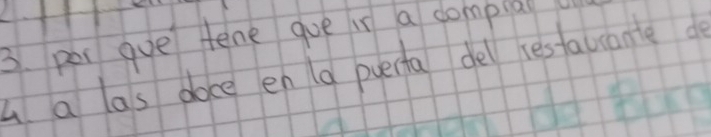 3. por que tene que ir a comprar
4. a las doce en la puerta del restaurante de